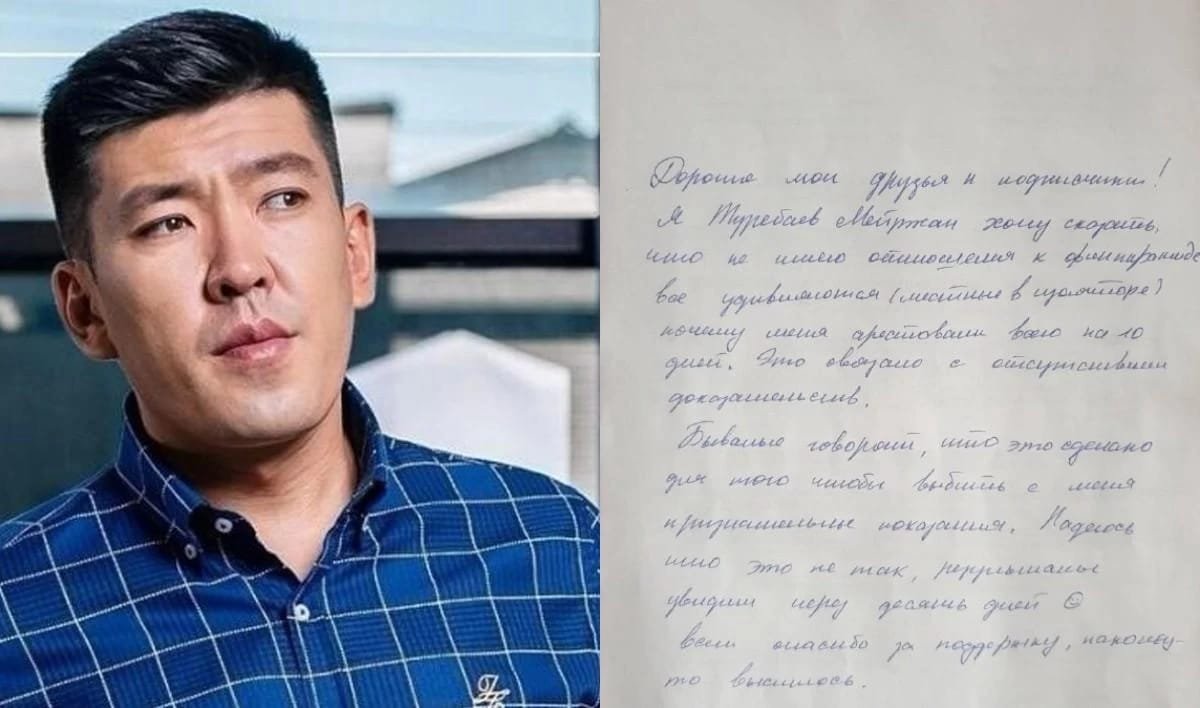 Дорогие мои друзья и подписчики!
Я Туребаев Мейржан хочу сказать,
что не имею отношения к финпирамиде
все удивляются (местные в изоляторе)
почему меня арестовали всего на 10
дней. Это связано с отсутствием
доказательств.
Бывалые говорят, что это сделано
для того чтобы выбить с меня
признательные показания. Надеюсь
что это не так, результаты
увидим через десять дней ☺
всем спасибо за поддержку,
то выспилось.